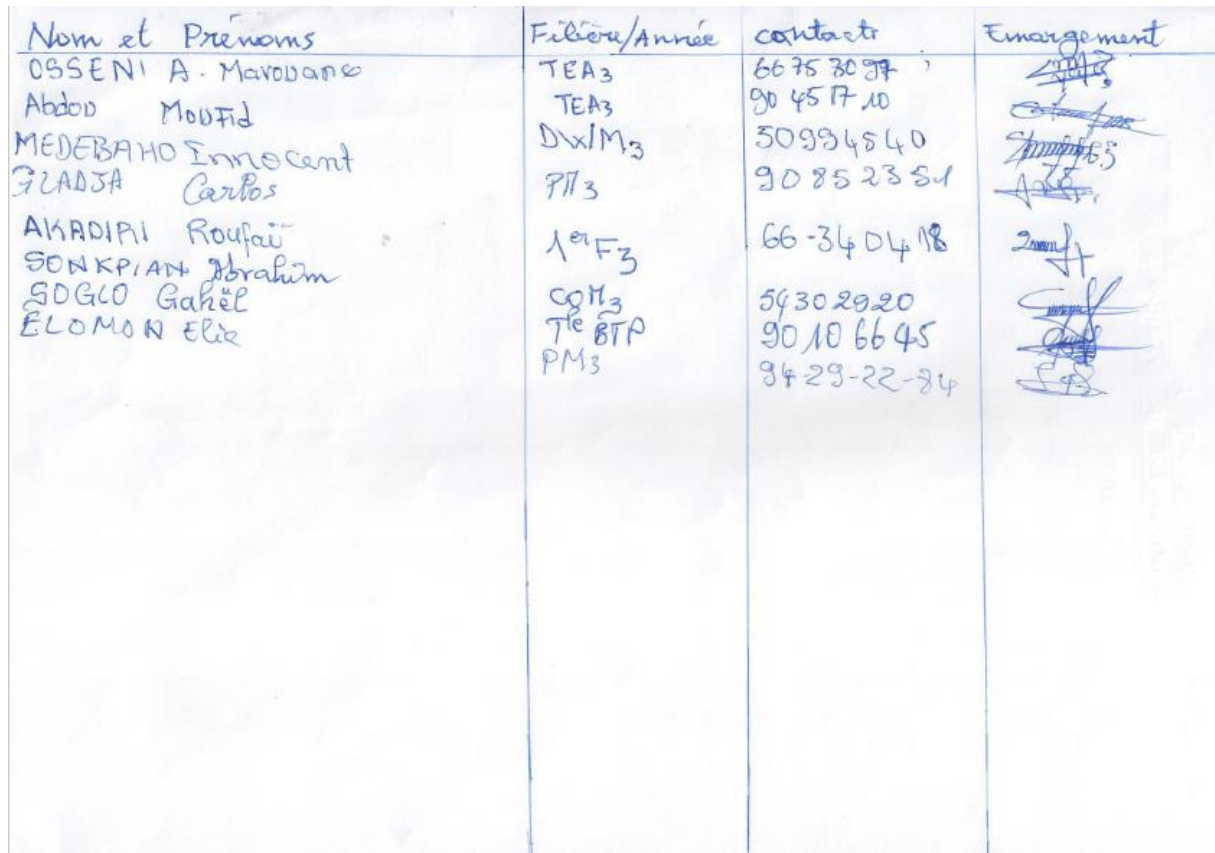 Nom et Prénoms Filière/Année contacts Emargement
OSSENI A. Marouane TEA3 66 75 30 97
Abdou Moufid TEA3 90 45 17 10
MEDEBAHO Innocent DW/M3 50994540
GLADJA Carlos PM3 90 85 23 51
AKADIRI Roufaï 1er F3 66-34 04 18
SONKPIAN Ibrahim
SOGLO Gahël CGM3 54302920
ELOMON Elie Tle BTP 90 10 66 45
PM3 94-29-22-84